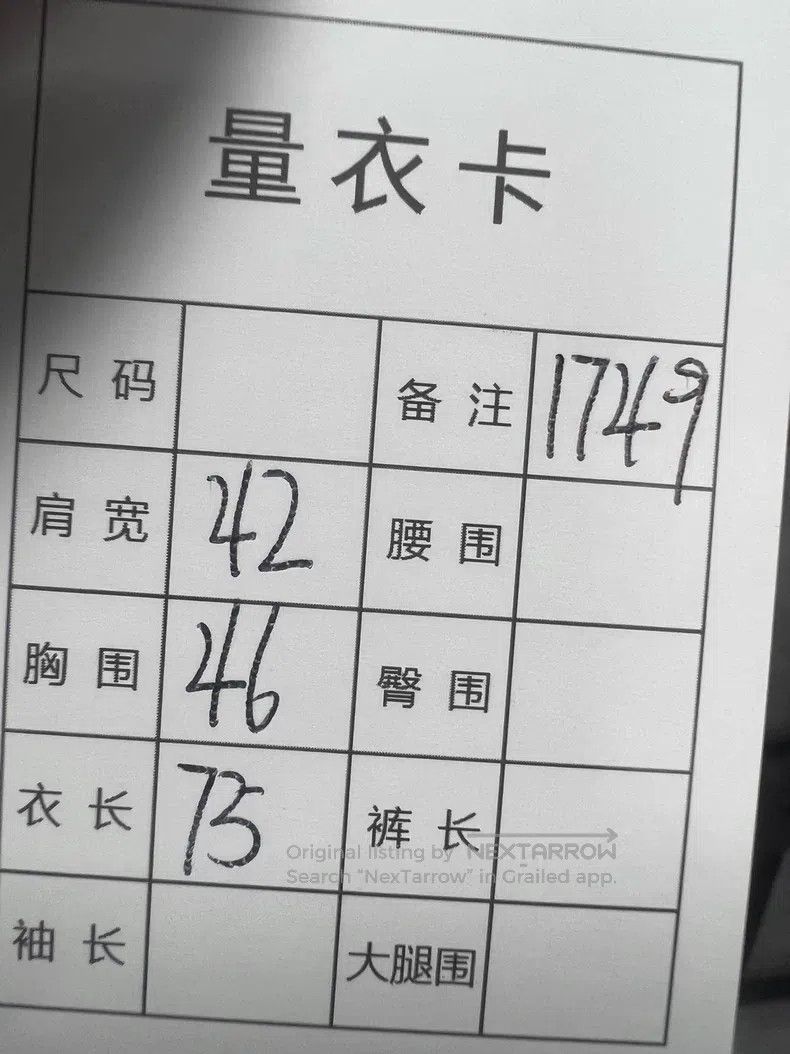 量衣卡
尺码 备注 1749
肩宽 42 腰围
胸围 46 臀围
衣长 75 裤长
Original listing by NEXTARROW
Search "NexTarrow" in Grailed app.
袖长 大腿围